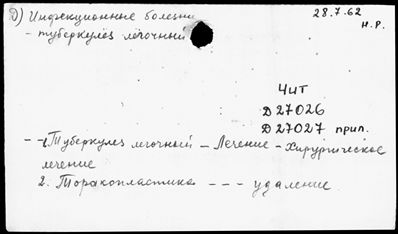 д) Инфекционные болезни
28.7.62
Н.Р.
- туберкулез легочный
Чит
Д 27026
Д 27027 прил.
- - 1. Туберкулез легочный - Лечение - Хирургическое
лечение
2. Торакопластика - - - удаление